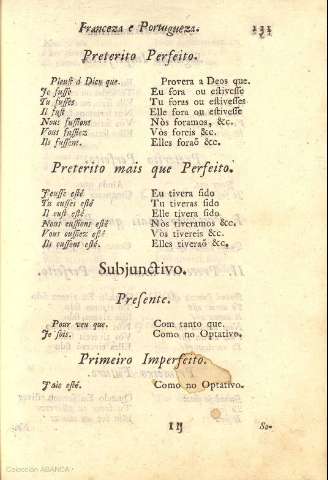 Franceza e Portugueza. 131
Preterito Perfeito.
Pleust á Dieu que. Provera a Deos que.
Je fusse Eu fora ou estivesse
Tu fusses Tu foras ou estivesses
Il fust Elle fora ou estivesse
Nous fussions Nòs foramos, &c.
Vous fussiez Vòs foreis &c.
Ils fussent. Elles foraõ &c.
Preterito mais que Perfeito.
J'eusse esté Eu tivera sido
Tu eusses esté Tu tiveras sido
Il eust esté Elle tivera sido
Nous eussions esté Nòs tiveramos &c.
Vous eussiez esté Vòs tivereis &c.
Ils eussent esté. Elles tiveraõ &c.
Subjunctivo.
Presente.
Pour veu que. Com tanto que.
Je sois. Como no Optativo.
Primeiro Imperfeito.
J'aie esté. Como no Optativo.
I ij Se-
Colección ABANCA